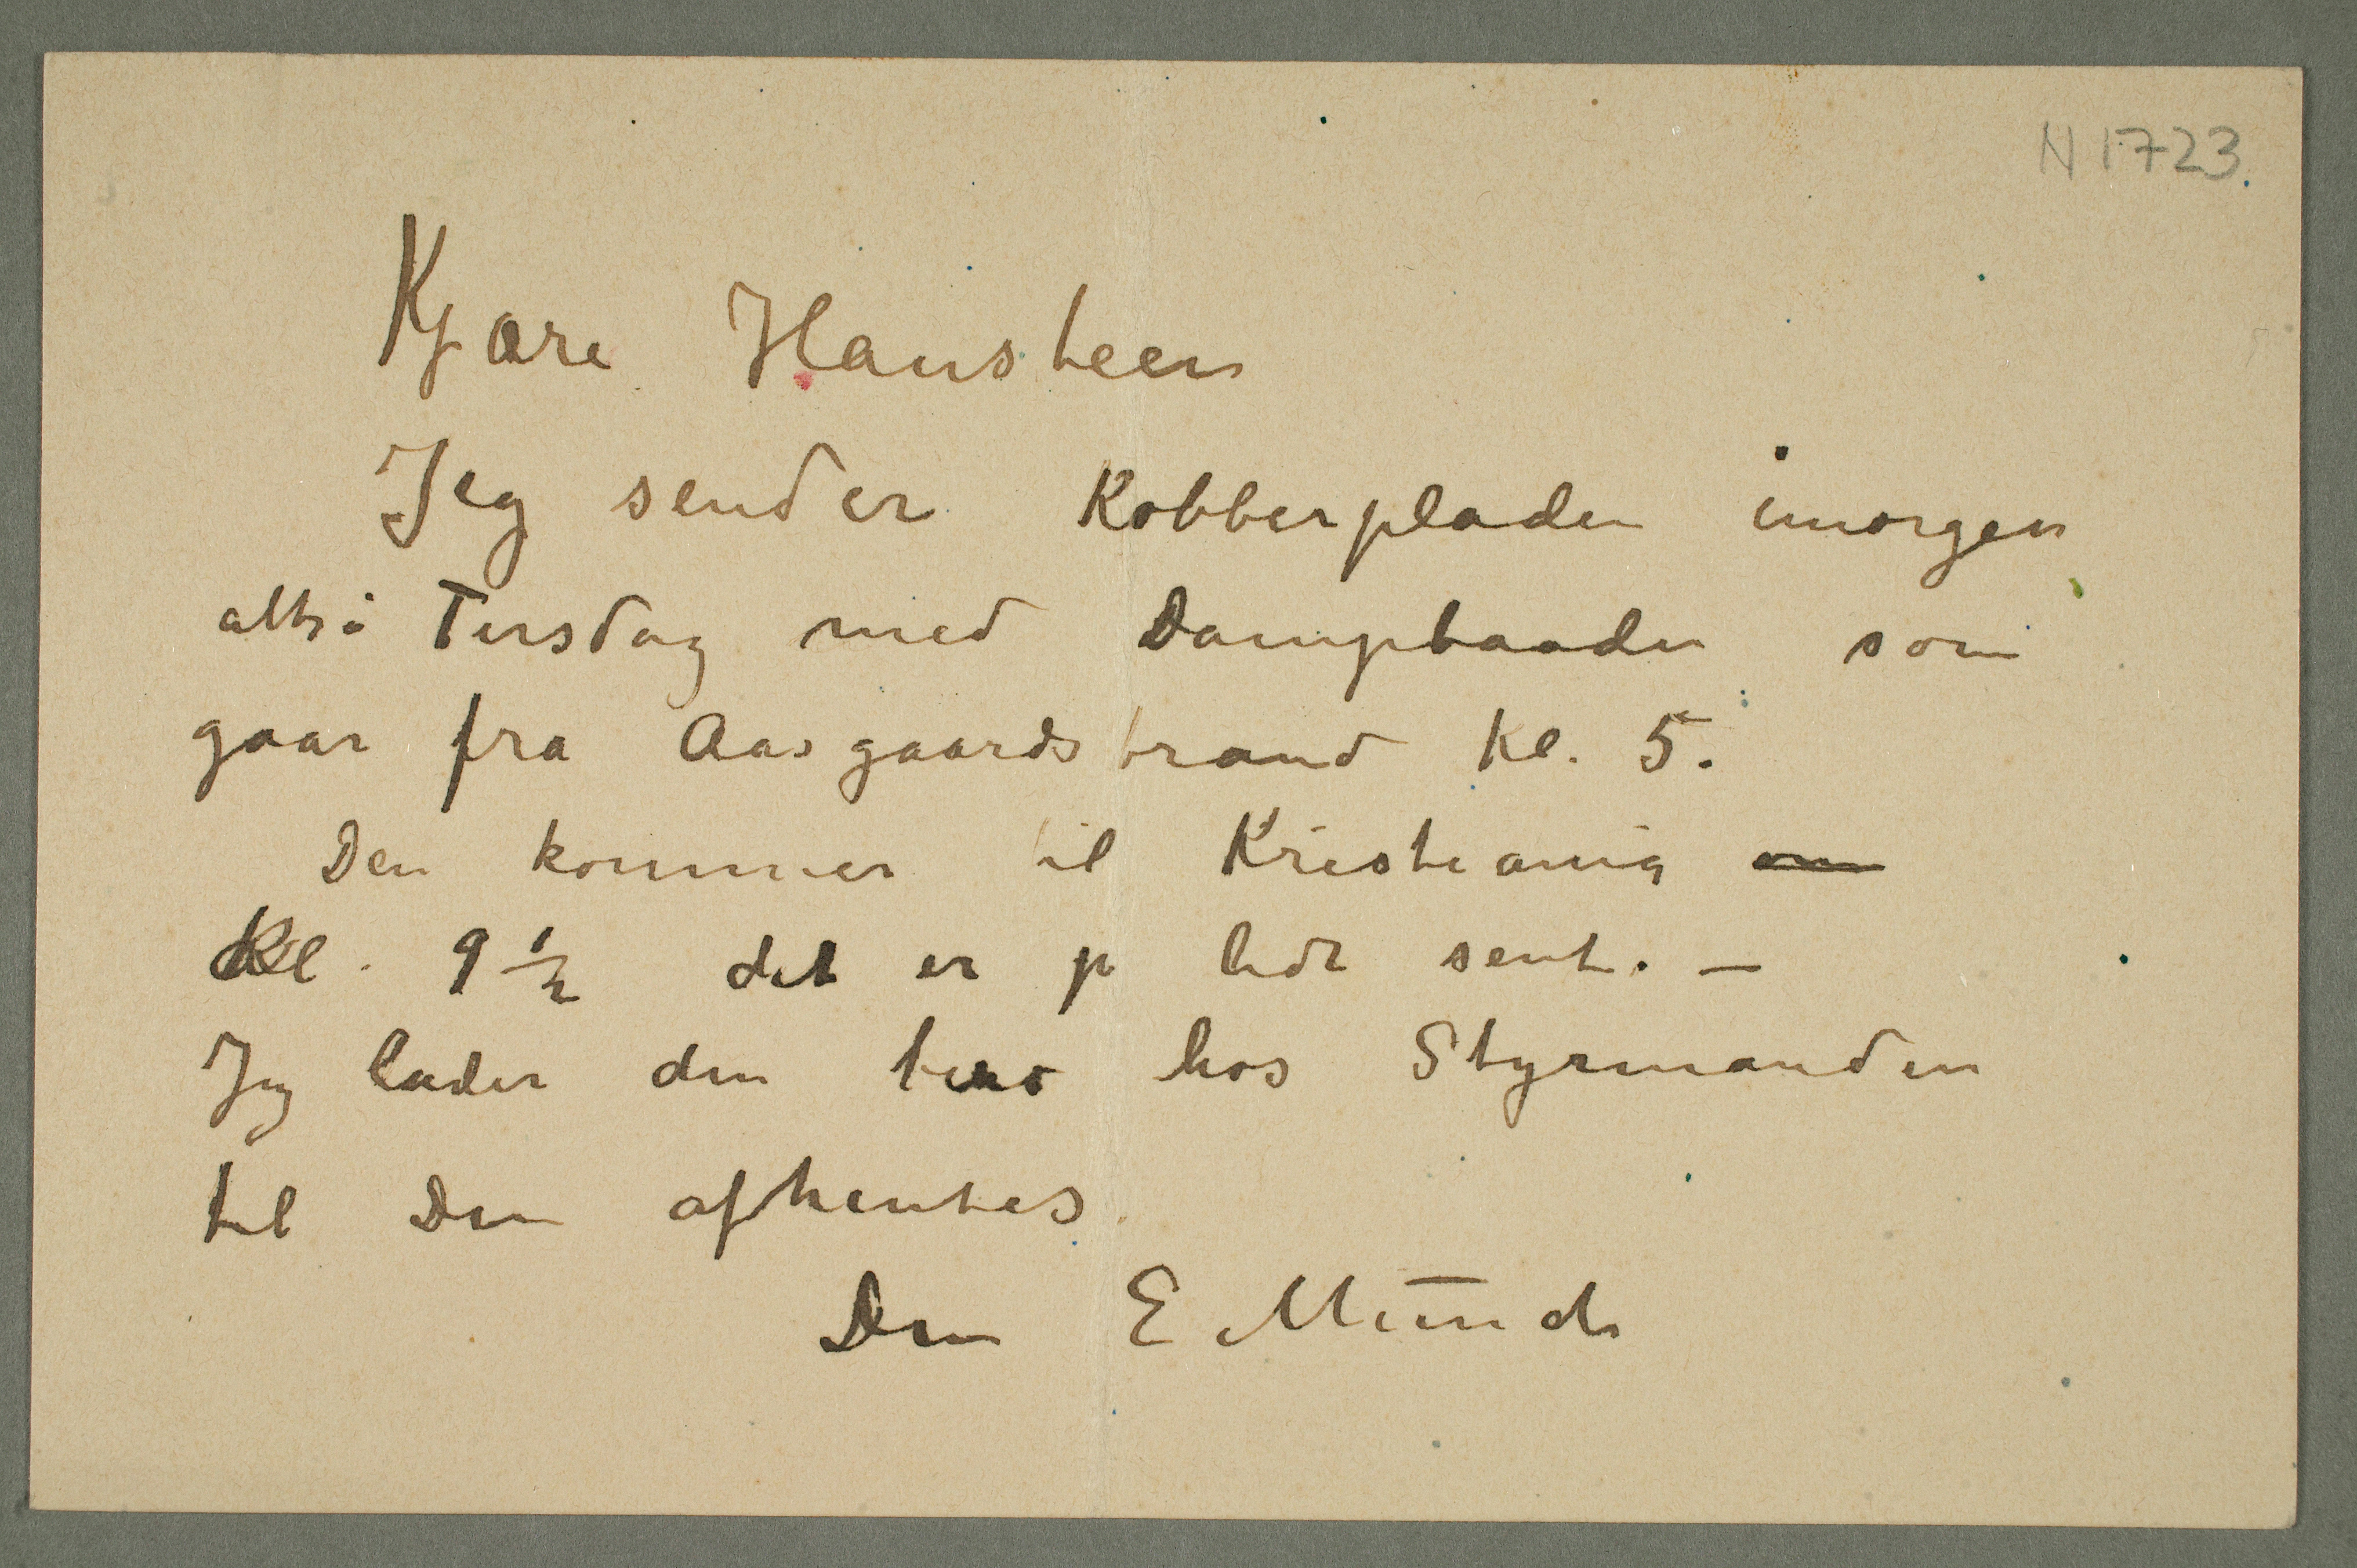 N 1723
Kjære Hansteen
Jeg sender Kobberpladen imorgen
altså Tirsdag med Dampbaaden som
gaar fra Aasgaardstrand Kl. 5.
Den kommer til Kristiania om
Kl. 9 ½ det er jo lidt sent. –
Jeg lader den bero hos Styrmanden
til Den afhentes
Den E Munch